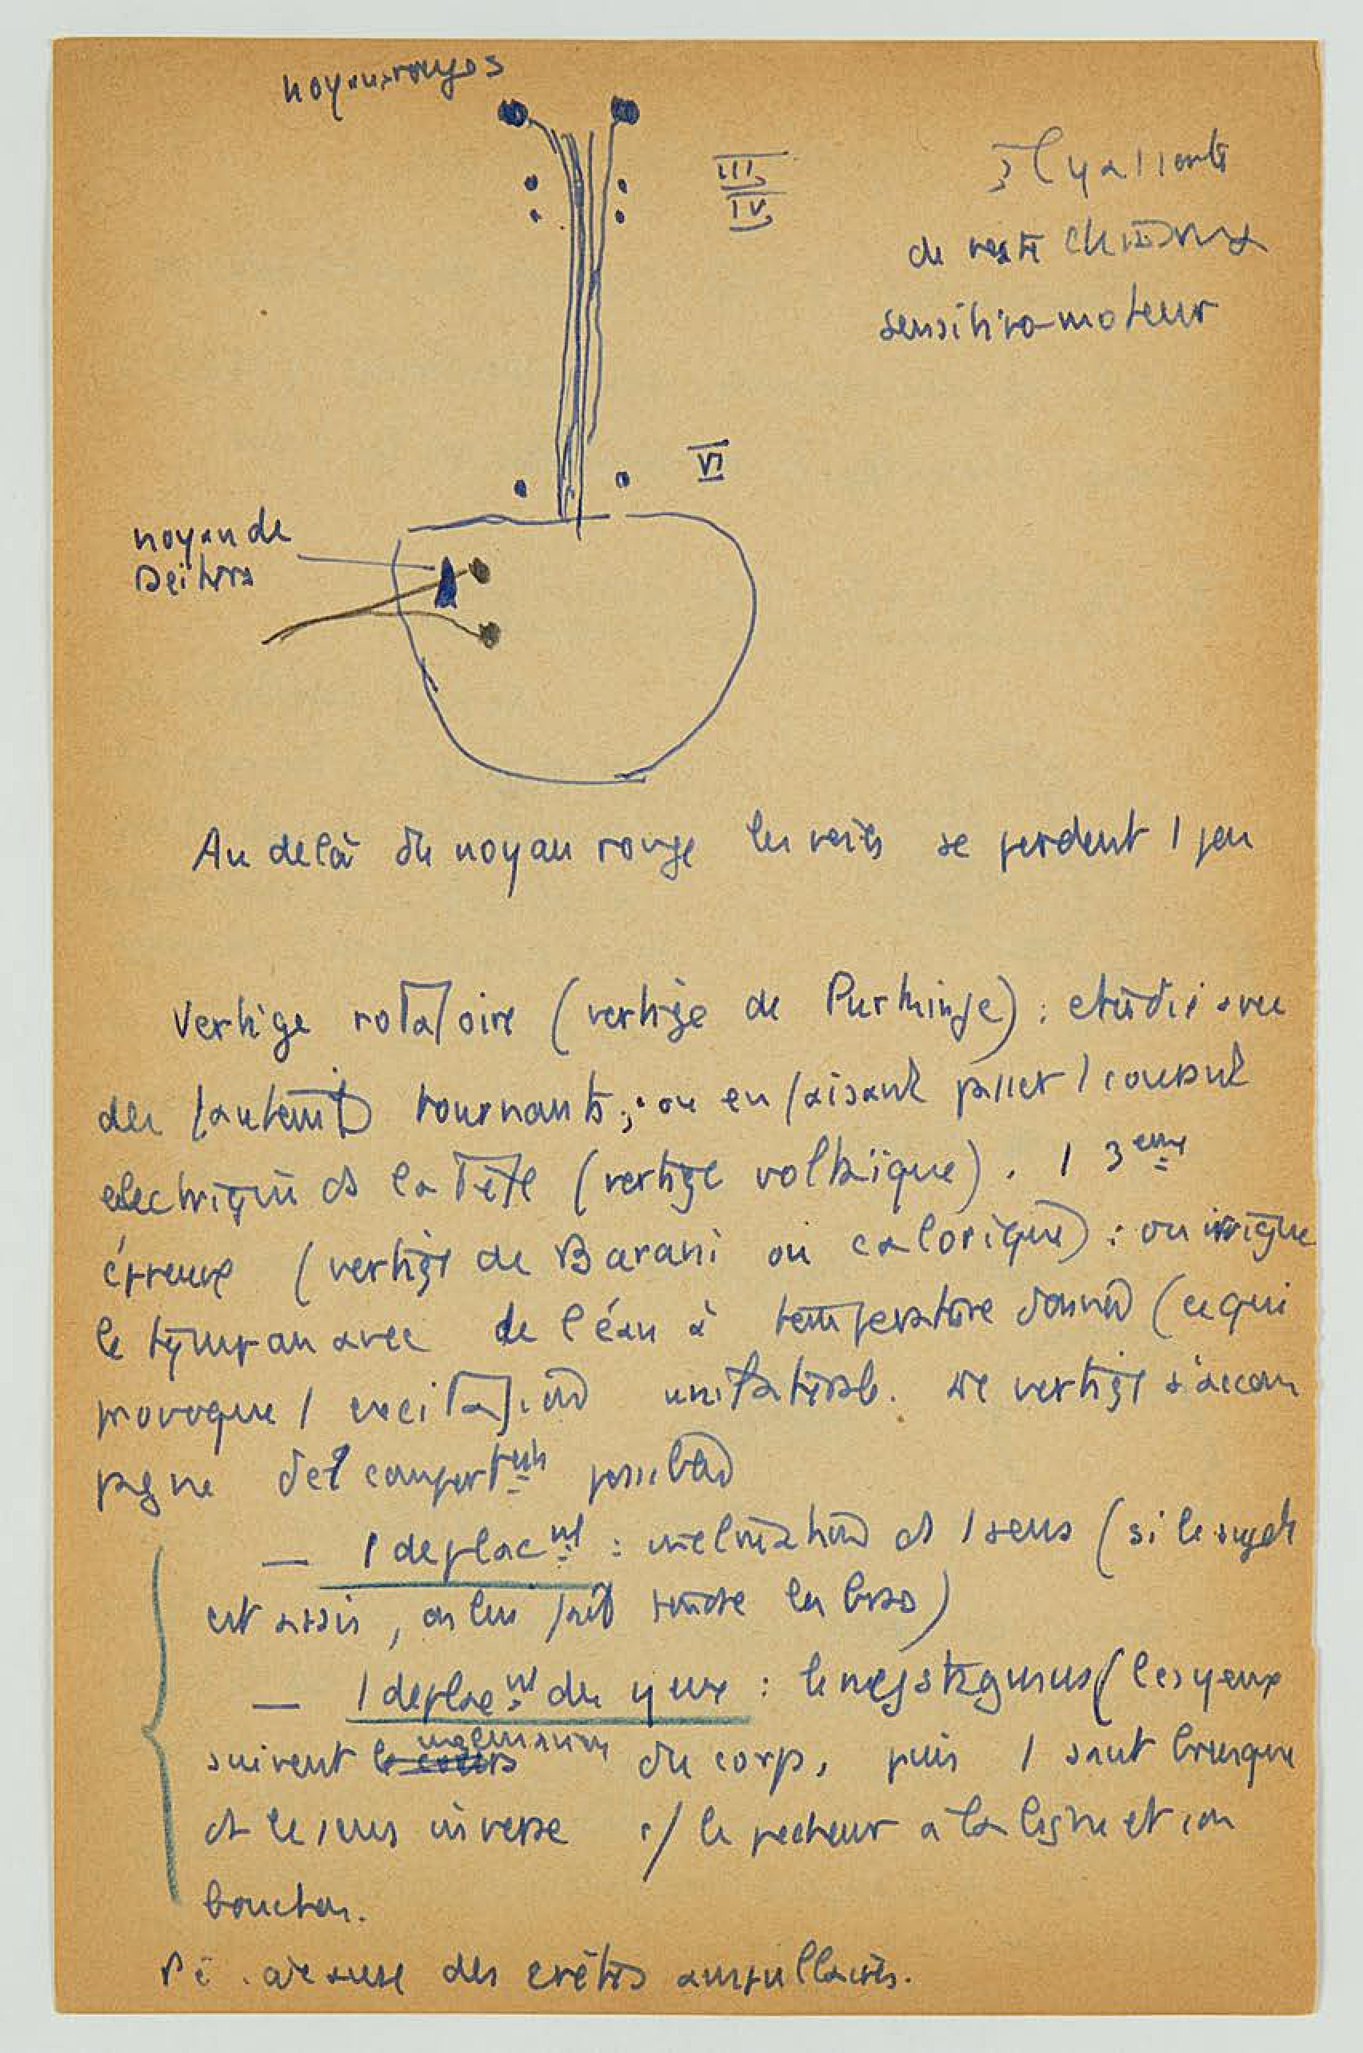 noyaux rouges
III
IV
de vaste
sensitivo-moteur
VI
noyau de
Deiters
Au delà du noyau rouge les voies se perdent 1 peu
Vertige rotatoire (vertige de Purkinje) : étudié avec
des fauteuils tournants ; ou en faisant passer 1 courant
électrique ds la tête (vertige voltaïque). 1 3eme
épreuve (vertige de Barani ou calorique) : on irrigue
le tympan avec de l'eau à température donnée (ce qui
provoque 1 excitation unilatérale. Le vertige s'accom
pagne de 2 comportmts possibles
— 1 déplacmt : inclination ds 1 sens (si le sujet
est assis, on lui fait tendre les bras)
— 1 déplacmt des yeux : le nystagmus (les yeux
suivent inclinaison du corps, puis 1 saut brusque
ds le sens inverse c/ le pêcheur à la ligne et son
bouchon.
à cause des crêtes ampullaires.